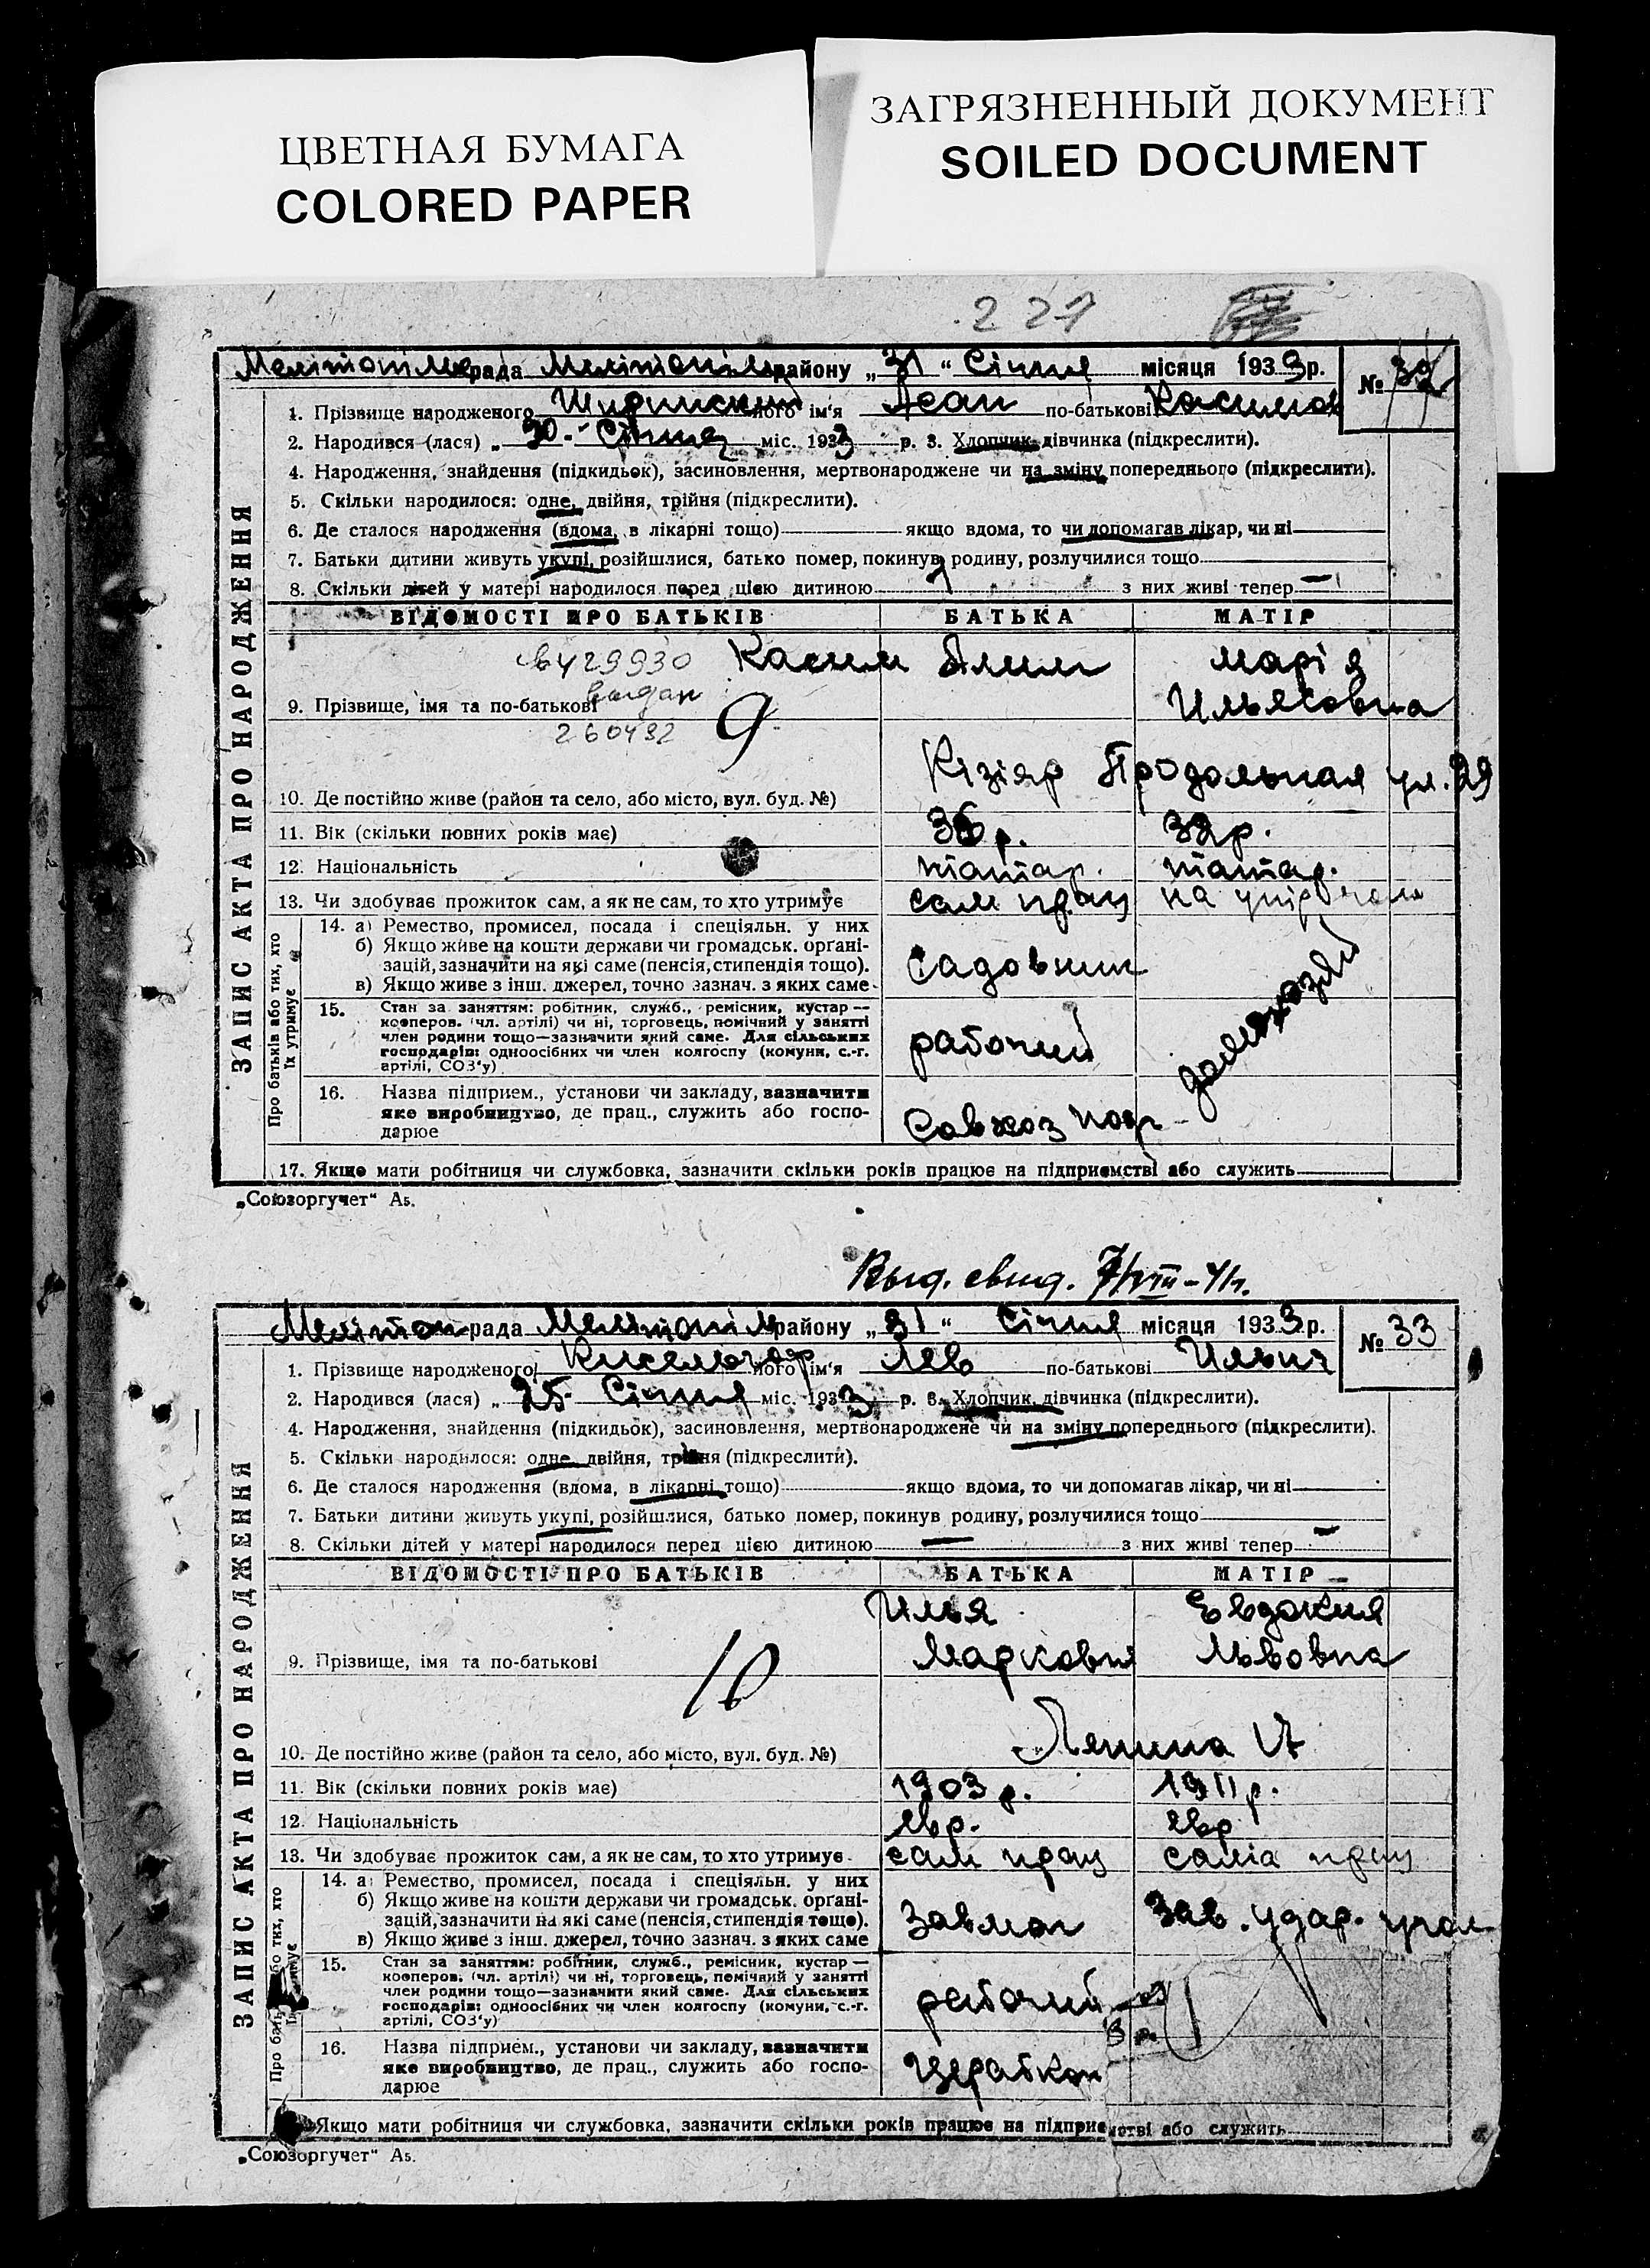 ЦВЕТНАЯ БУМАГА
COLORED PAPER
ЗАГРЯЗНЕННЫЙ ДОКУМЕНТ
SOILED DOCUMENT
227
рада района „31“ Січня місяця 1933р. №
1. Прізвище народженого його ім'я Асан по-батькові
2. Народився (лася) „30 Січня міс. 1933 р. 3. Хлопчик, дівчинка (підкреслити).
4. Народження, знайдення (підкидьок), засиновлення, мертвонароджене чи на зміну попереднього (підкреслити).
5. Скільки народилося: одне, двійня, трійня (підкреслити).
6. Де сталося народження (вдома, в лікарні тощо) якщо вдома, то чи допомагав лікар, чи ні
7. Батьки дитини живуть укупі, розійшлися, батько помер, покинув родину, розлучилися тощо
8. Скільки дітей у матері народилося перед цією дитиною з них живі тепер —
ЗАПИС АКТА ПРО НАРОДЖЕННЯ
ВІДОМОСТІ ПРО БАТЬКІВ БАТЬКА МАТІР
429930 Касим Марія
Ильясовна
9. Прізвище, імя та по-батькові 9
260432
Кізіяр Продольная ул. 29
10. Де постійно живе (район та село, або місто, вул. буд. №)
11. Вік (скільки повних років має) 36 р. 32 р.
12. Національність татар. татар.
13. Чи здобуває прожиток сам, а як не сам, то хто утримує сам прац на
Про батьків або тих, хто їх утримує
14. а) Ремество, промисел, посада і спеціяльн. у них
б) Якщо живе на кошти держави чи громадськ. органі-
зацій, зазначити на які саме (пенсія, стипендія тощо).
в) Якщо живе з інш. джерел, точно зазнач. з яких саме
садовник
домохозяй
15. Стан за заняттям: робітник, служб., ремісник, кустар—
кооперов. (чл. артілі) чи ні, торговець, помічний у занятті
член родини тощо—зазначити який саме. Для сільських
господарів: одноосібних чи член колгоспу (комуни, с.-г.
артілі, СОЗ'у)
рабочий
16. Назва підприєм., установи чи закладу, зазначити
яке виробництво, де прац., служить або госпо-
дарює
Совхоз
17. Якщо мати робітниця чи службовка, зазначити скільки років працює на підприємстві або служить
„Союзоргучет“ А5.
Выд. свид. 7/VIII-41г.
рада району „31“ Січня місяця 1933р. № 33
1. Прізвище народженого його ім'я Лев по-батькові Ильич
2. Народився (лася) „25 Січня міс. 1933 р. 3. Хлопчик, дівчинка (підкреслити).
4. Народження, знайдення (підкидьок), засиновлення, мертвонароджене чи на зміну попереднього (підкреслити).
5. Скільки народилося: одне, двійня, трійня (підкреслити).
6. Де сталося народження (вдома, в лікарні тощо) якщо вдома, то чи допомагав лікар, чи ні
7. Батьки дитини живуть укупі, розійшлися, батько помер, покинув родину, розлучилися тощо
8. Скільки дітей у матері народилося перед цією дитиною — з них живі тепер —
ЗАПИС АКТА ПРО НАРОДЖЕННЯ
ВІДОМОСТІ ПРО БАТЬКІВ БАТЬКА МАТІР
Илья Евдокия
9. Прізвище, імя та по-батькові 10 Маркович Львовна
10. Де постійно живе (район та село, або місто, вул. буд. №)
11. Вік (скільки повних років має) 1903 р. 1911 р.
12. Національність євр. євр
13. Чи здобуває прожиток сам, а як не сам, то хто утримує сам прац сама прац
14. а) Ремество, промисел, посада і спеціяльн. у них
б) Якщо живе на кошти держави чи громадськ. органі-
зацій, зазначити на які саме (пенсія, стипендія тощо).
в) Якщо живе з інш. джерел, точно зазнач. з яких саме
завмаг Зав. удар.
15. Стан за заняттям: робітник, служб., ремісник, кустар—
кооперов. (чл. артілі) чи ні, торговець, помічний у занятті
член родини тощо—зазначити який саме. Для сільських
господарів: одноосібних чи член колгоспу (комуни, с.-г.
артілі, СОЗ'у)
рабочий
16. Назва підприєм., установи чи закладу, зазначити
яке виробництво, де прац., служить або госпо-
дарює
Церабкоп
Якщо мати робітниця чи службовка, зазначити скільки років працює на підприємстві або служить
„Союзоргучет“ А5.